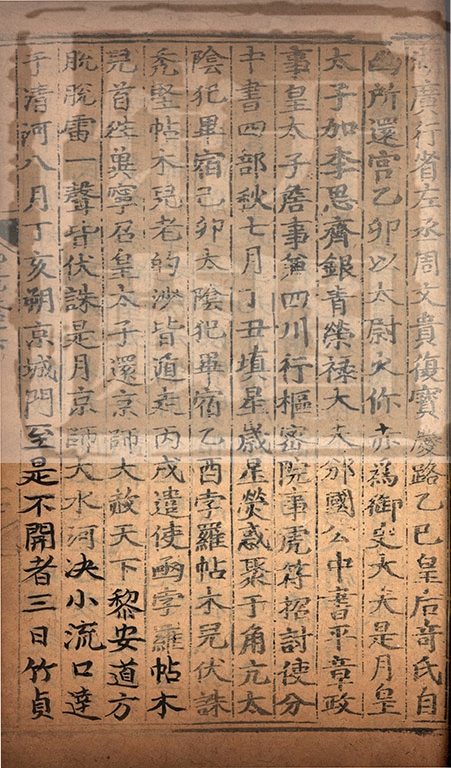 湖廣行省左丞周文貴復寶慶路乙巳皇后奇氏自
幽所還宮乙卯以太尉火你赤爲御史大夫是月皇
太子加李思齊銀青榮祿大夫邠國公中書平章政
事皇太子詹事兼四川行樞密院事虎符招討使分
中書四部秋七月丁丑填星歲星熒惑聚于角亢太
陰犯畢宿己卯太陰犯畢宿乙酉孛羅帖木兒伏誅
禿堅帖木兒老的沙皆遁走丙戌遣使函孛羅帖木
兒首往冀寧召皇太子還京師大赦天下黎安道方
脫脫雷一聲皆伏誅是月京師大水河决小流口達
于清河八月丁亥朔京城門至是不開者三日竹貞